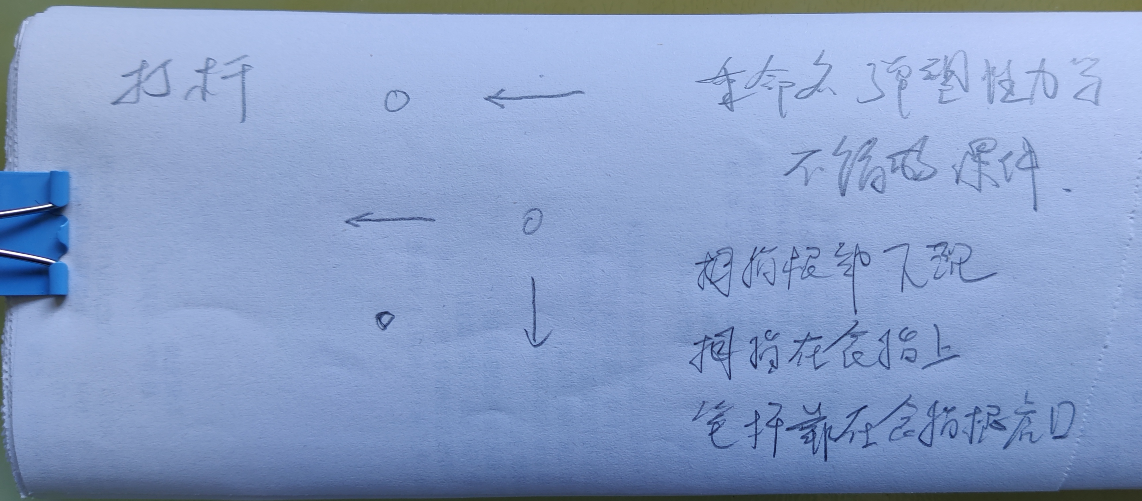 打杆
重命名 弹塑性力学
不错的课件.
拇指根部下现
拇指在食指上
笔杆靠在食指根虎口